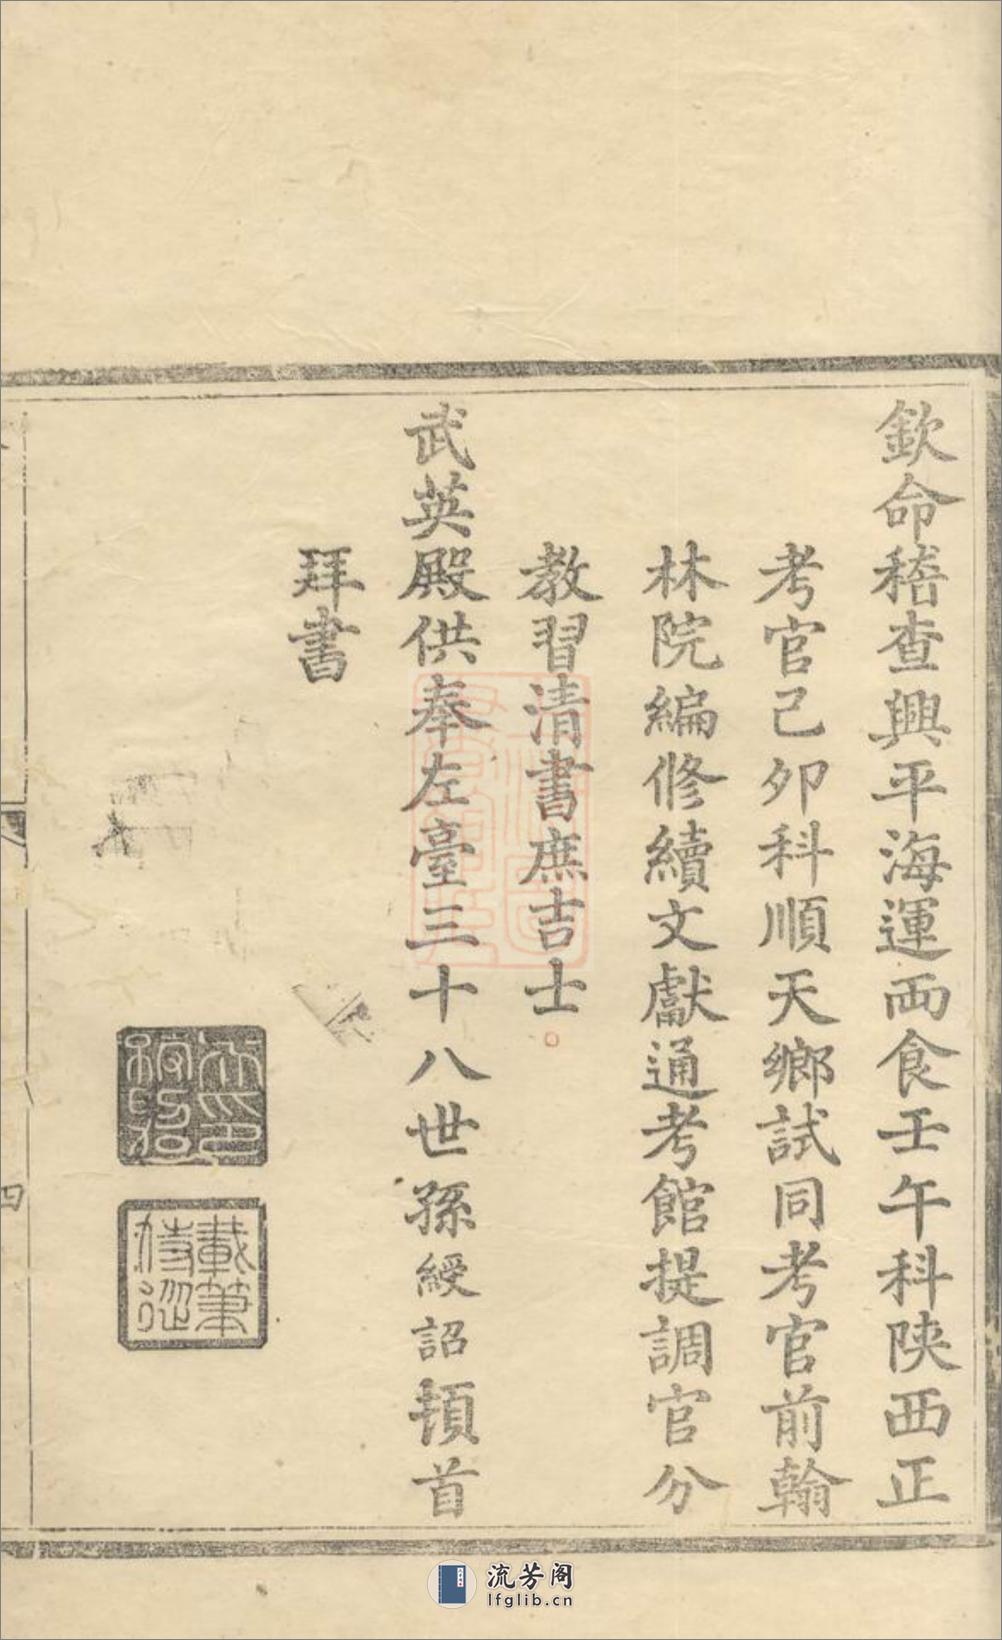 欽命稽查興平海運兩倉壬午科陝西正
考官己卯科順天鄉試同考官前翰
林院編修續文獻通考館提調官分
教習清書庶吉士
武英殿供奉左臺三十八世孫綬詔頓首
拜書
載筆
侍從
四
流芳阁
lfglib.cn